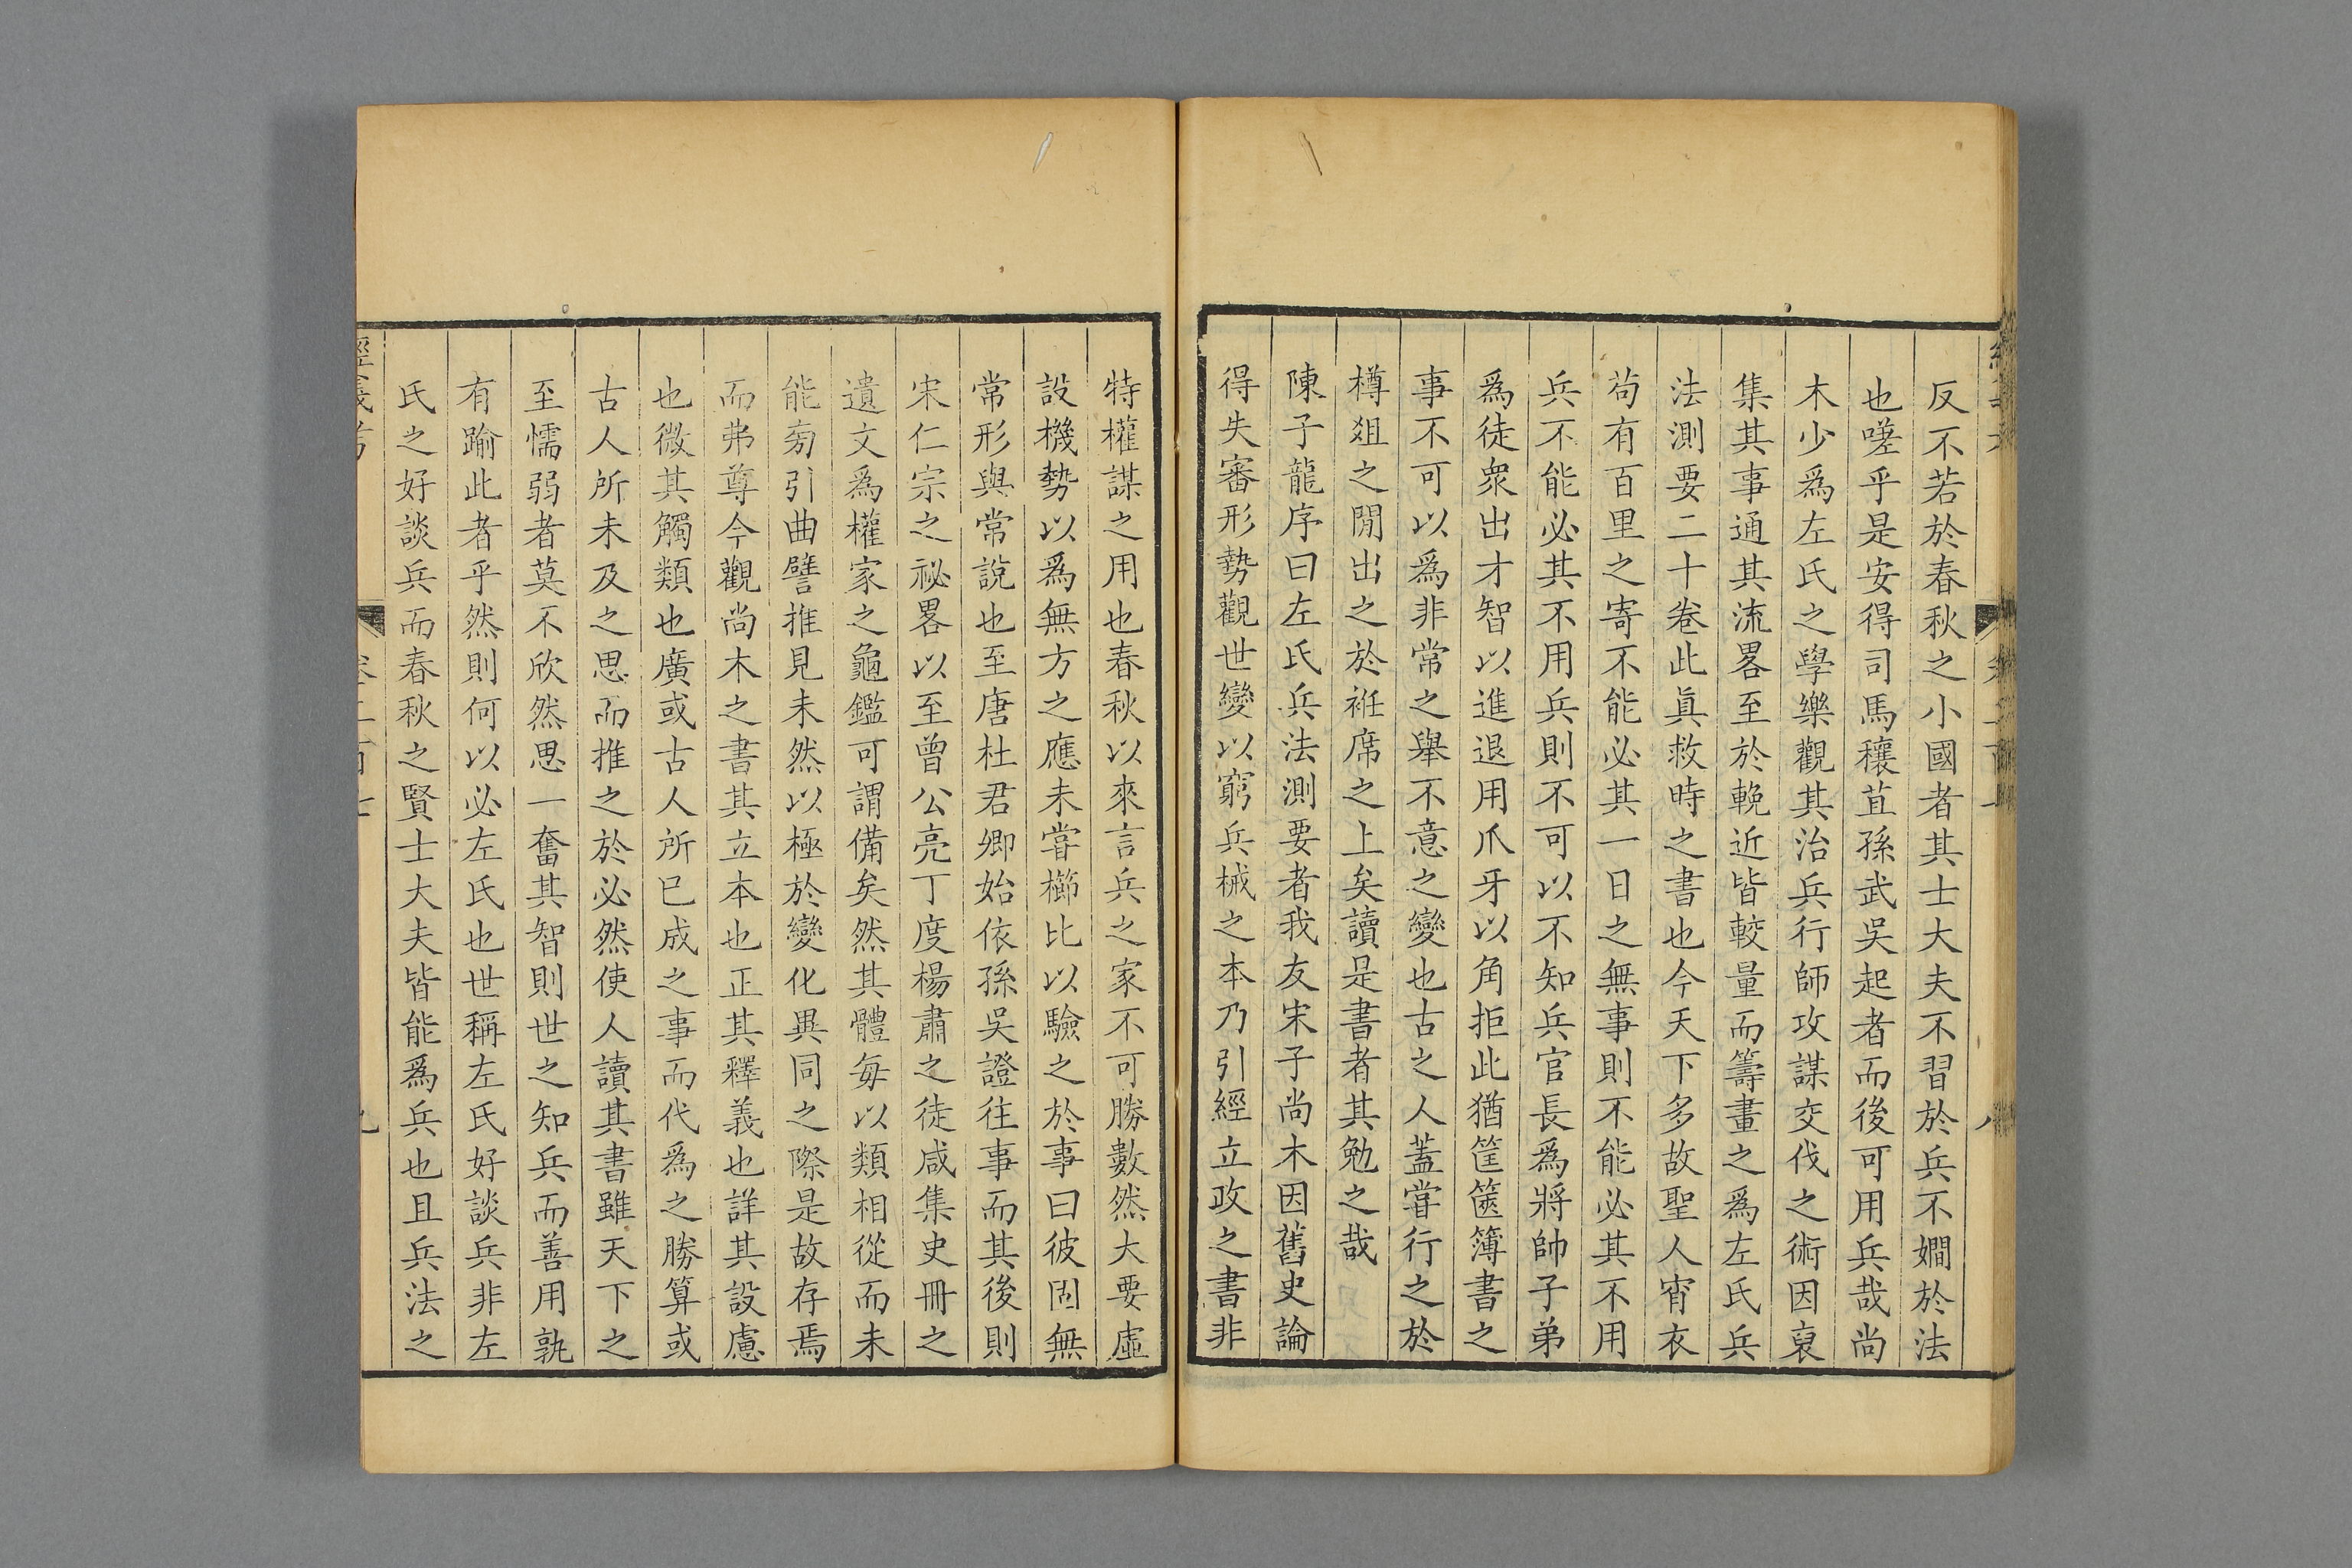 反不若於春秋之小國者其士大夫不習於兵不嫺於法
也嗟乎是安得司馬穰苴孫武吳起者而後可用兵哉尚
木少爲左氏之學樂觀其治兵行師攻謀交伐之術因裒
集其事通其流畧至於輓近皆較量而籌畫之爲左氏兵
法測要二十卷此眞救時之書也今天下多故聖人宵衣
茍有百里之寄不能必其一日之無事則不能必其不用
兵不能必其不用兵則不可以不知兵官長爲將帥子弟
爲徒衆出才智以進退用爪牙以角拒此猶筐篋簿書之
事不可以爲非常之舉不意之變也古之人蓋嘗行之於
樽俎之閒出之於袵席之上矣讀是書者其勉之哉
陳子龍序曰左氏兵法測要者我友宋子尚木因舊史論
得失審形勢觀世變以窮兵械之本乃引經立政之書非
特權謀之用也春秋以來言兵之家不可勝數然大要虛
設機勢以爲無方之應未嘗櫛比以驗之於事曰彼固無
常形與常說也至唐杜君卿始依孫吳證往事而其後則
宋仁宗之祕畧以至曾公亮丁度楊肅之徒咸集史冊之
遺文爲權家之龜鑑可謂備矣然其體每以類相從而未
能旁引曲譬推見未然以極於變化異同之際是故存焉
而弗尊今觀尚木之書其立本也正其釋義也詳其設慮
也微其觸類也廣或古人所已成之事而代爲之勝算或
古人所未及之思而推之於必然使人讀其書雖天下之
至懦弱者莫不欣然思一奮其智則世之知兵而善用孰
有踰此者乎然則何以必左氏也世稱左氏好談兵非左
氏之好談兵而春秋之賢士大夫皆能爲兵也且兵法之